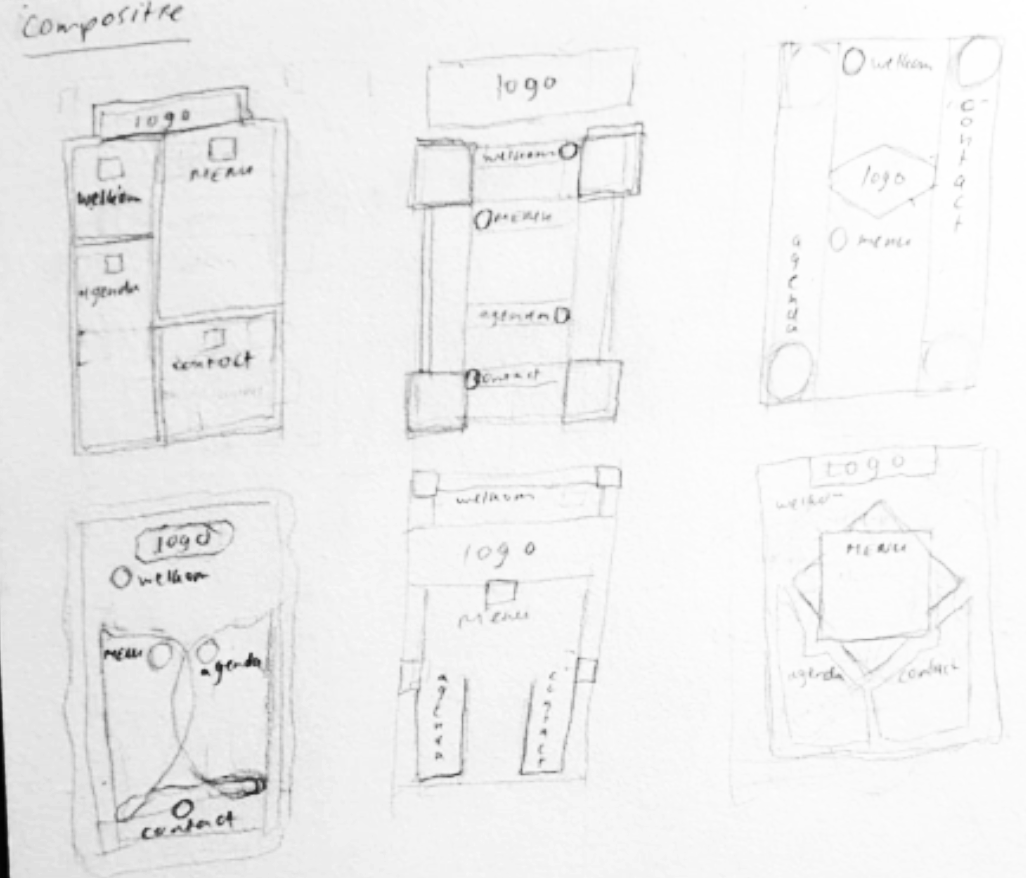 compositie
logo
welkom
MENU
agenda
contact
logo
welkom
MENU
agenda
contact
welkom
contact
logo
menu
agenda
logo
welkom
MENU
agenda
contact
welkom
logo
Menu
agenda
contact
LOGO
welkom
MENU
agenda
contact